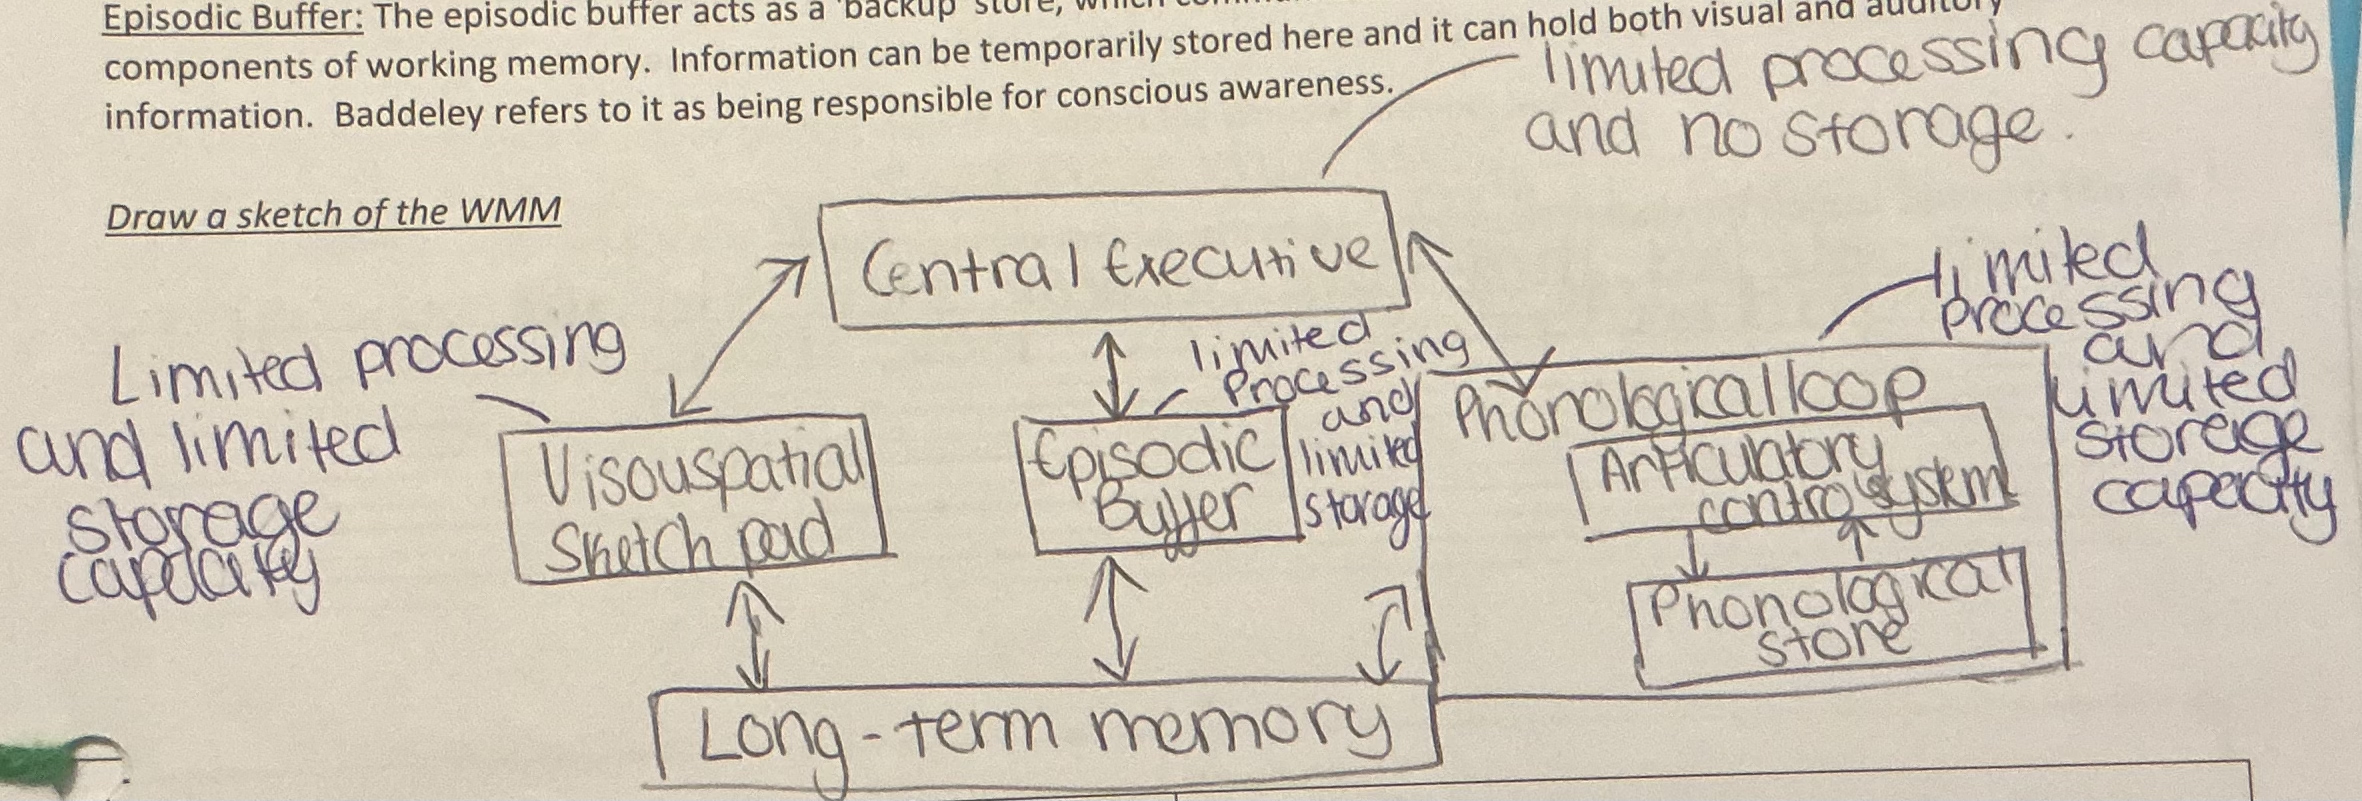 Episodic Buffer: The episodic buffer acts as a 'backup' store, which
components of working memory. Information can be temporarily stored here and it can hold both visual and auditory
information. Baddeley refers to it as being responsible for conscious awareness.
limited processing capacity
and no storage.
Draw a sketch of the WMM
Central Executive
Limited processing
and limited
storage
capacity
limited
processing
and
limited
storage
limited
processing
and
limited
storage
capacity
Visouspatial
Sketch pad
Episodic
Buffer
Phonological loop
Articulatory
control system
Phonological
store
Long-term memory